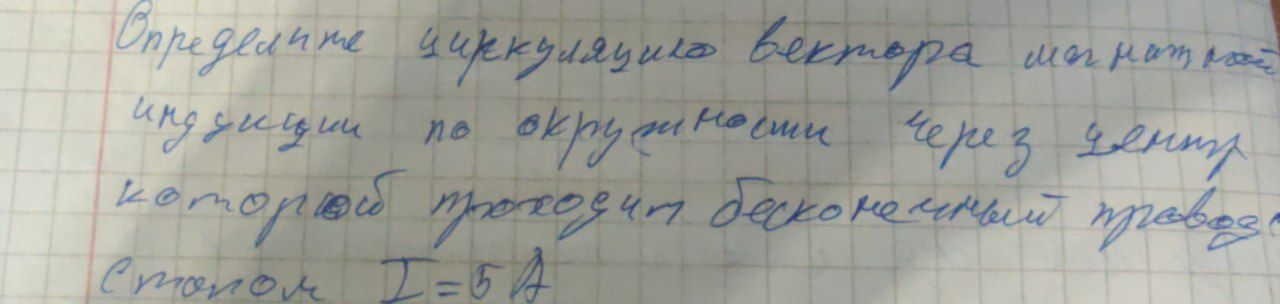 Определите циркуляцию вектора магнитной
индукции по окружности через центр
которой проходит бесконечный провод
с током I = 5 А